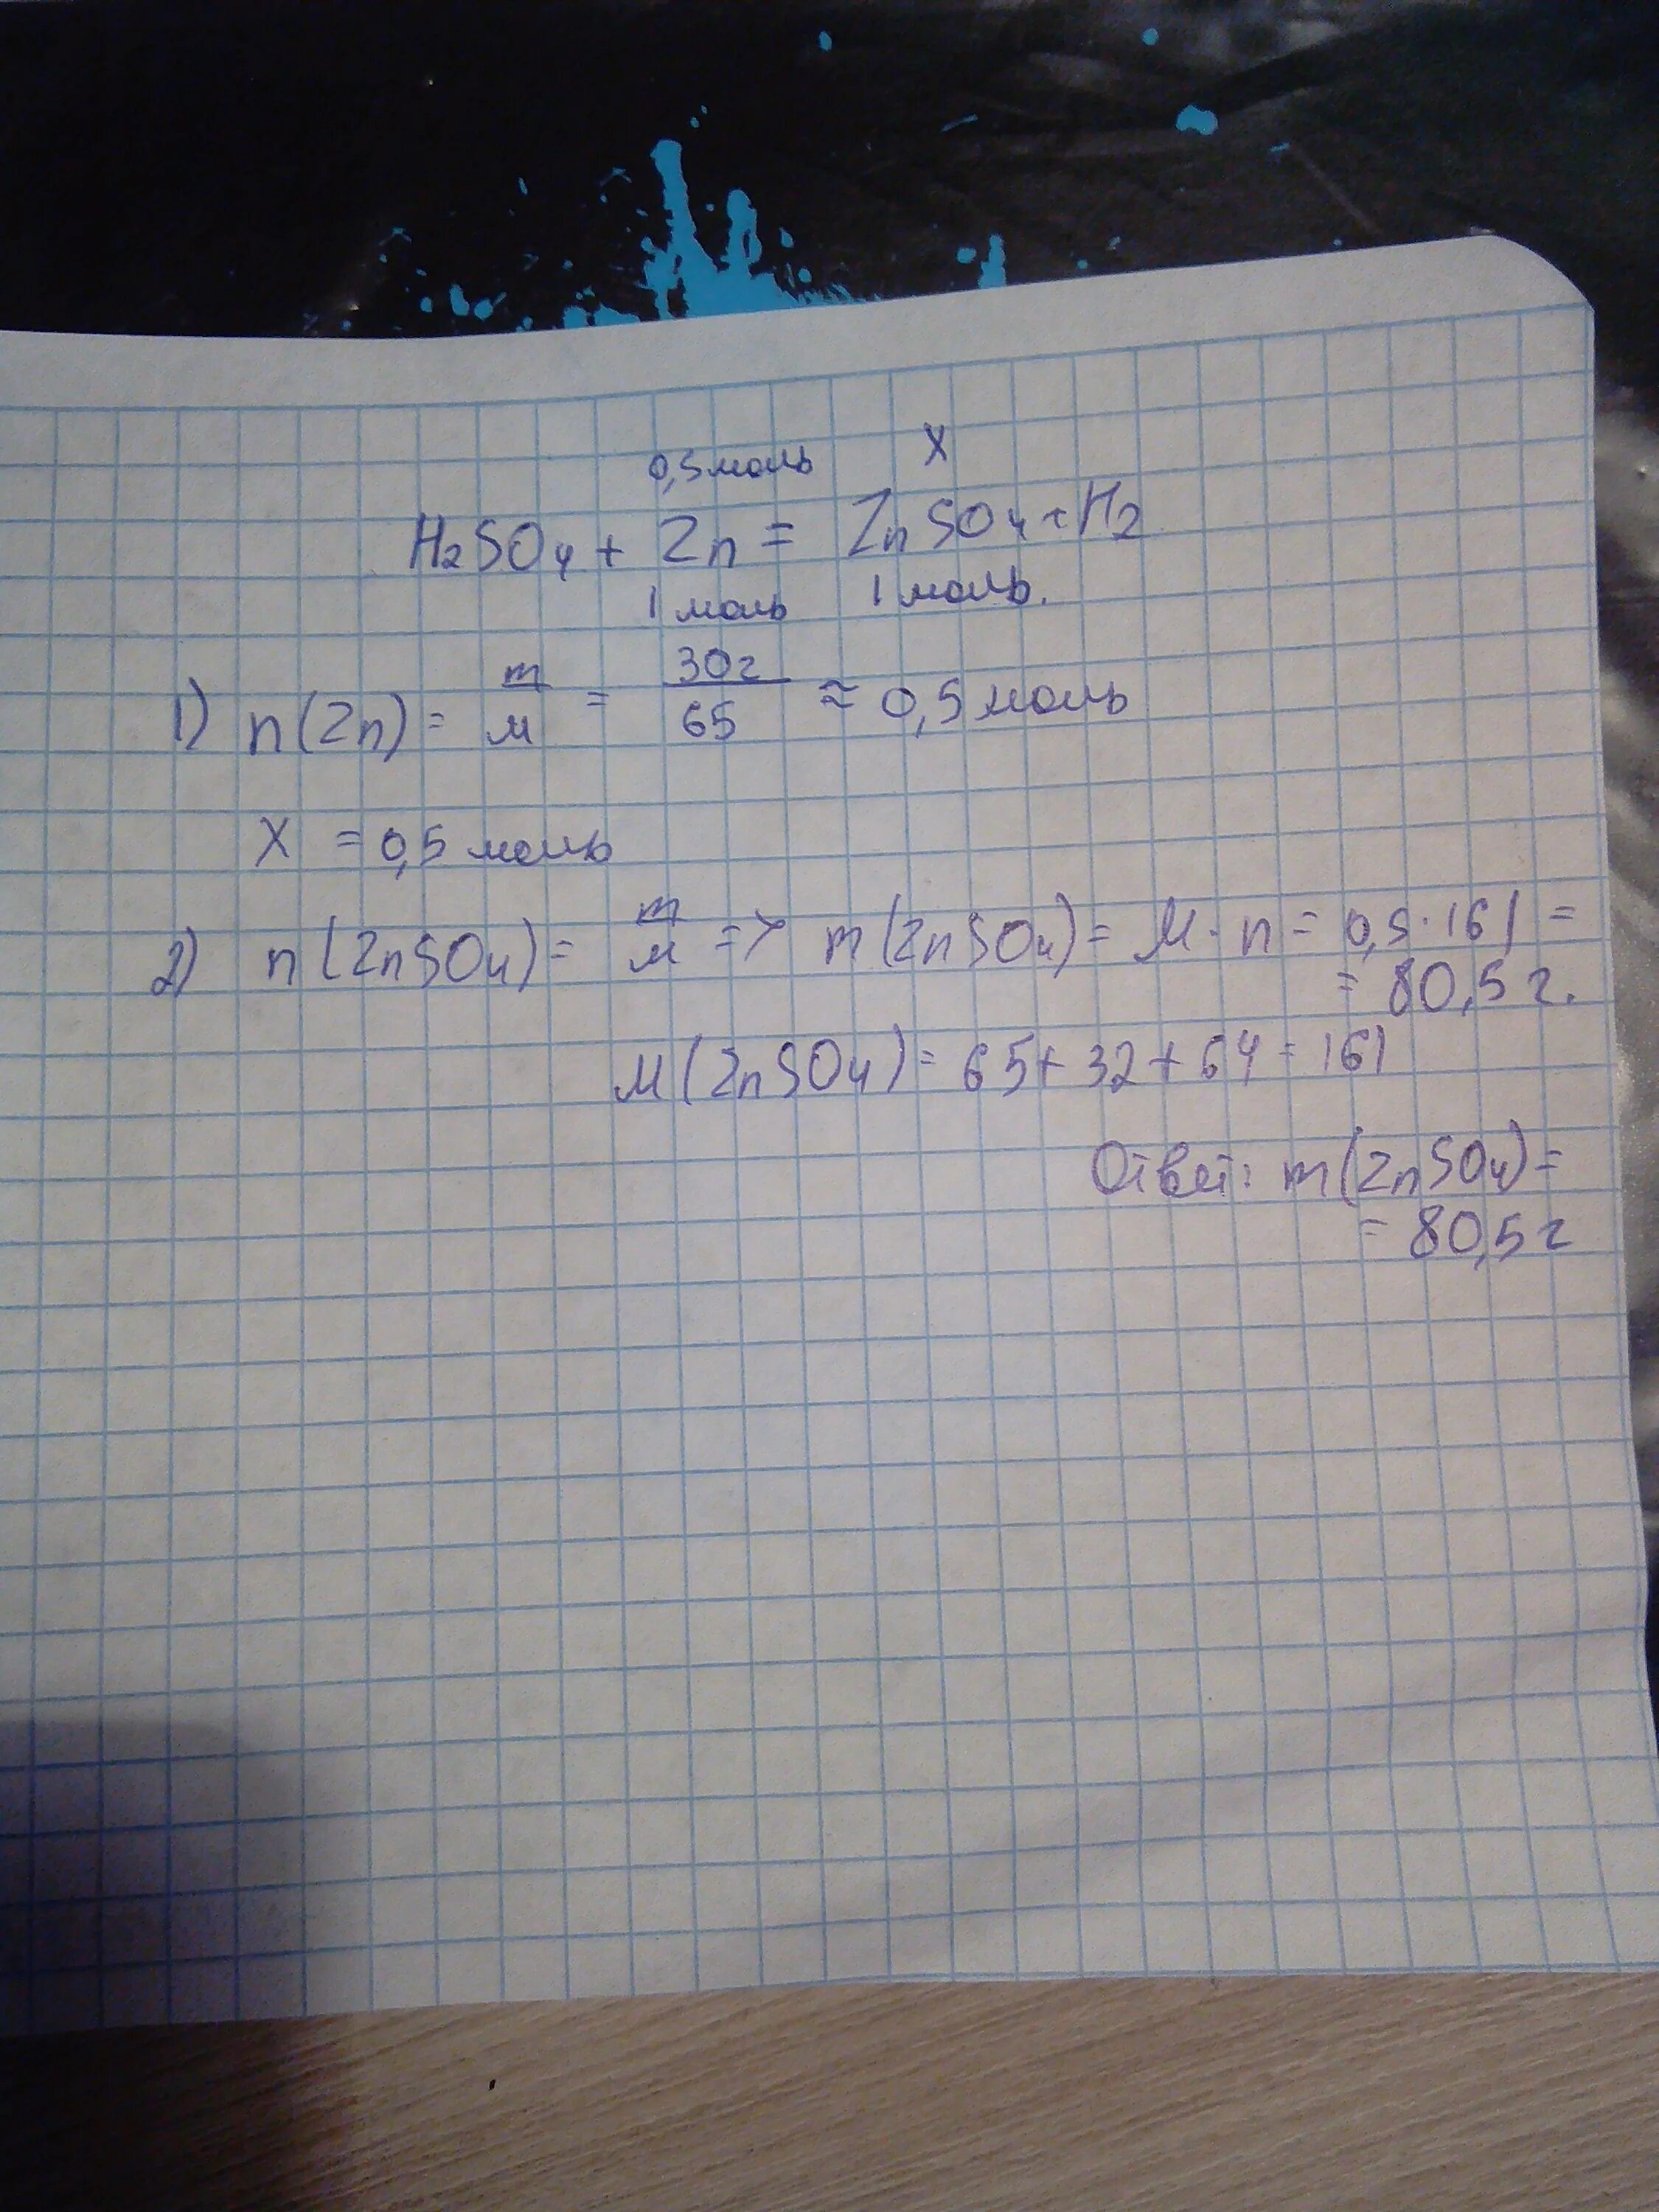 0,5 моль X
H2SO4 + Zn = ZnSO4 + H2
1 моль 1 моль.
1) n(Zn) = m/м = 30г/65 ≈ 0,5 моль
X = 0,5 моль
2) n(ZnSO4) = m/м => m(ZnSO4) = M · n = 0,5 · 161 =
= 80,5 г.
M(ZnSO4) = 65 + 32 + 64 = 161
Ответ: m(ZnSO4) =
= 80,5 г